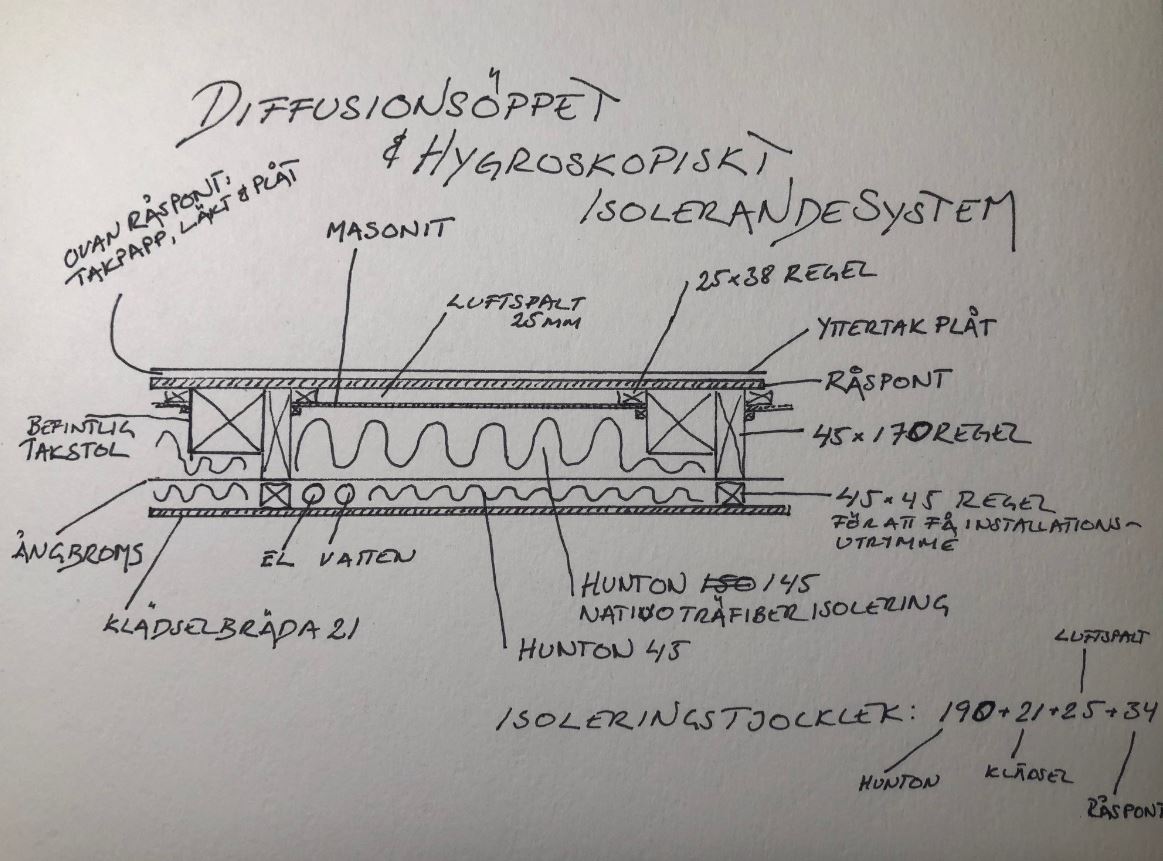 DIFFUSIONSÖPPET
& HYGROSKOPISKT
ISOLERANDE SYSTEM
OVAN RÅSPONT:
TAKPAPP, LÄKT & PLÅT
MASONIT
LUFTSPALT
25MM
25x38 REGEL
YTTERTAK PLÅT
RÅSPONT
BEFINTLIG
TAKSTOL
45x170 REGEL
45x45 REGEL
FÖR ATT FÅ INSTALLATIONS-
UTRYMME
ÅNGBROMS
EL VATTEN
HUNTON 150 145
NATIVO TRÄFIBERISOLERING
KLÄDSELBRÄDA 21
HUNTON 45
LUFTSPALT
ISOLERINGSTJOCKLEK: 190+21+25+34
HUNTON
KLÄDSEL
RÅSPONT